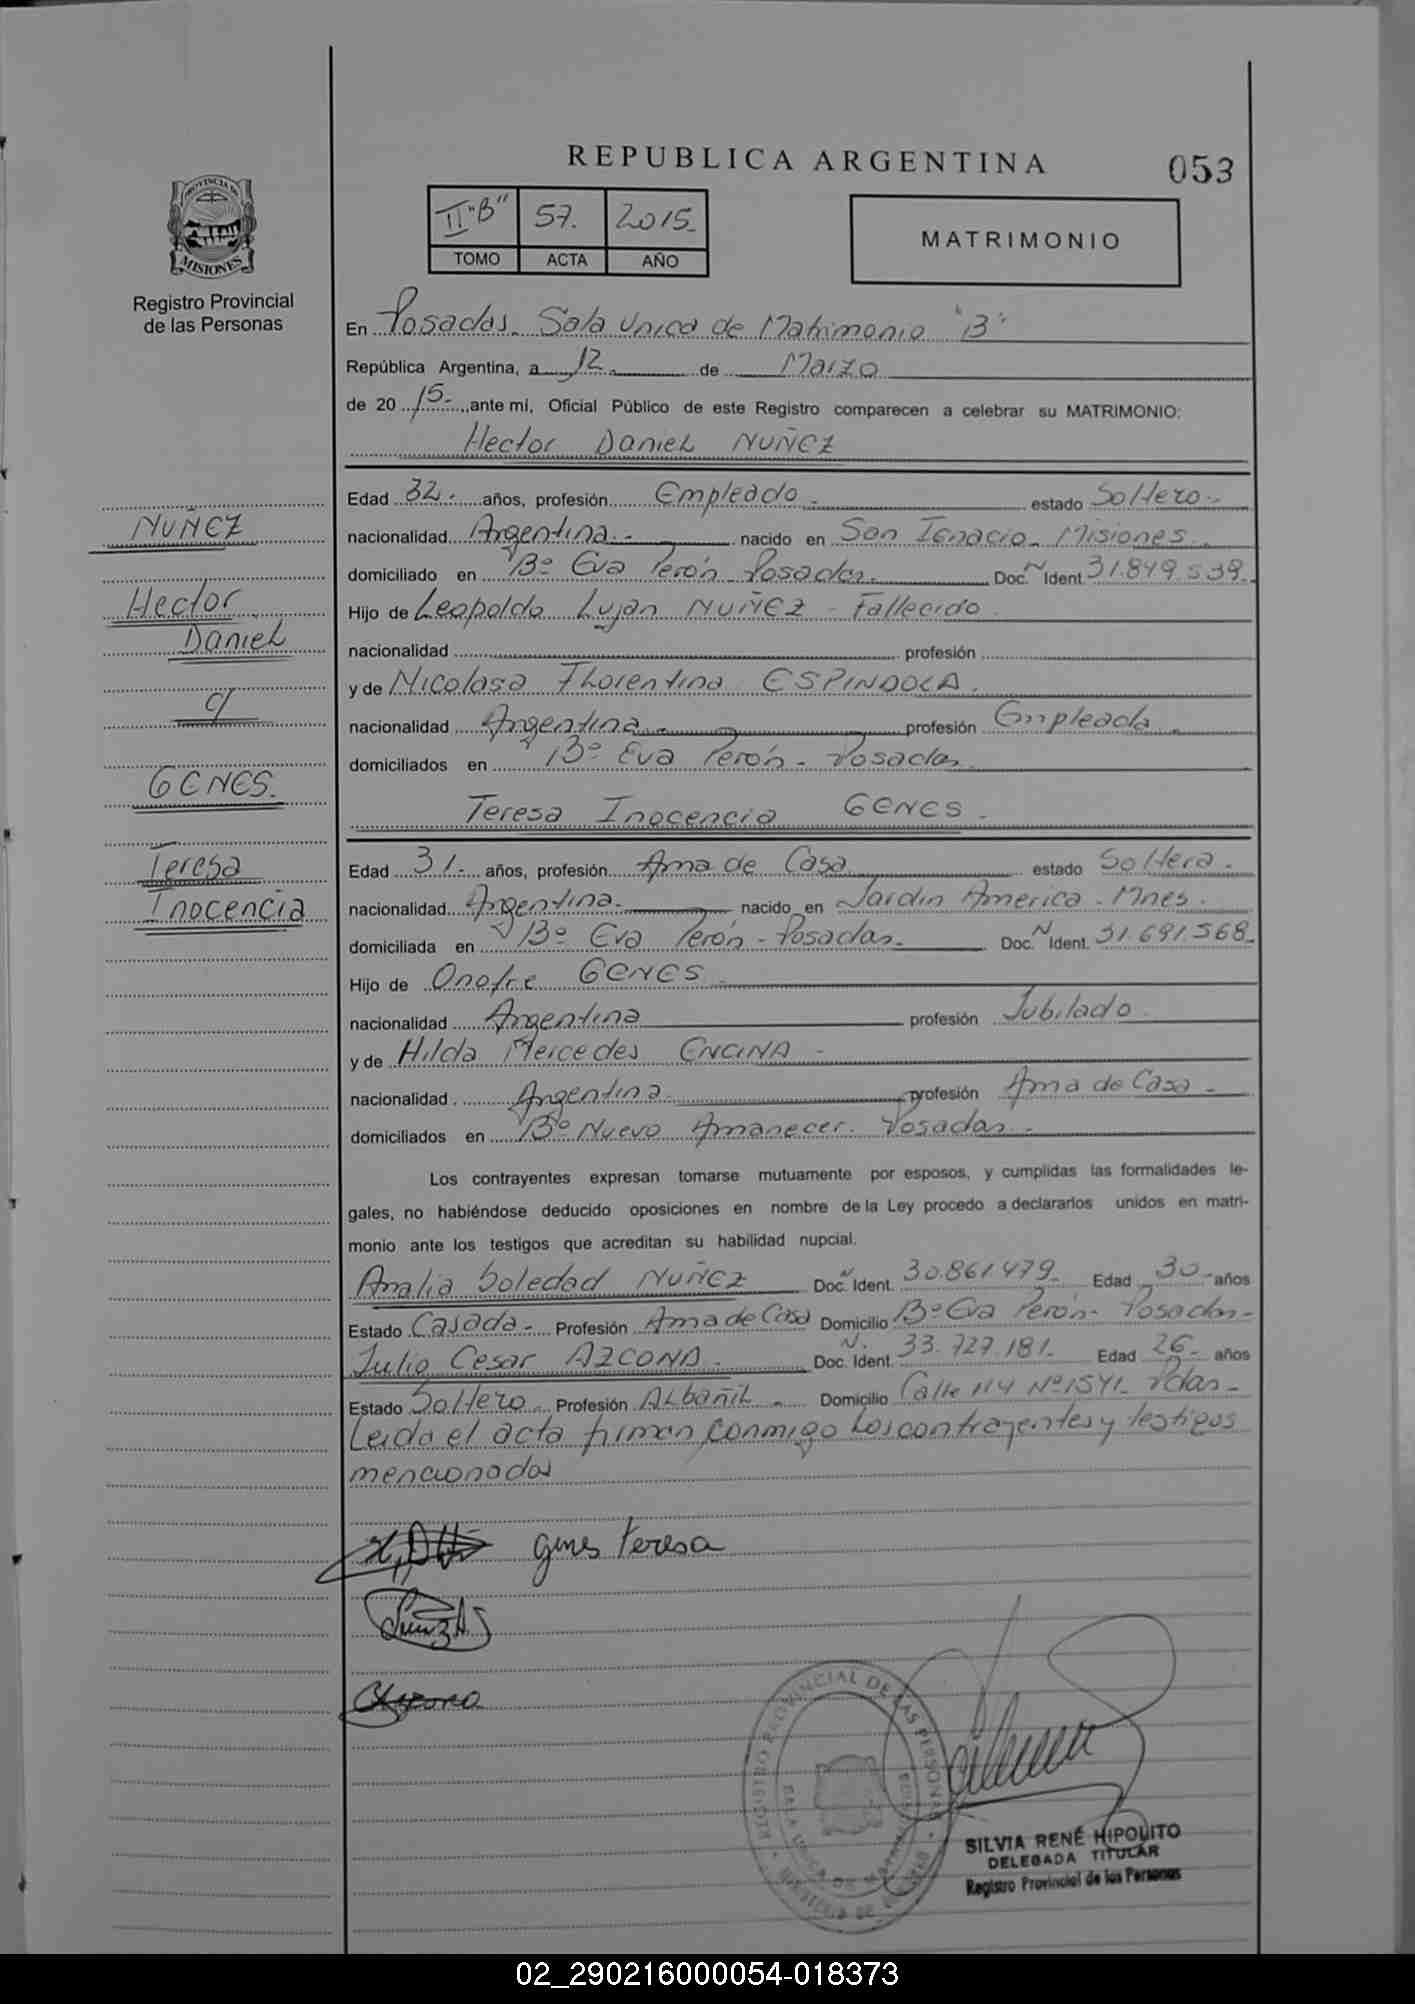 REPUBLICA ARGENTINA
053
PROVINCIA DE
MISIONES
Registro Provincial
de las Personas
II "B" 57. 2015.
TOMO ACTA AÑO
MATRIMONIO
En Posadas. Sala Unica de Matrimonio "B"
República Argentina, a 12 de Marzo
de 20 15. ante mi, Oficial Público de este Registro comparecen a celebrar su MATRIMONIO:
Hector Daniel NUÑEZ
Edad 32. años, profesión Empleado. estado Soltero.
nacionalidad Argentina. nacido en San Ignacio. Misiones.
domiciliado en B° Eva Perón Posadas. Doc. N Ident. 31.849.539.
Hijo de Leopoldo Lujan NUÑEZ - Fallecido
nacionalidad profesión
y de Nicolasa Florentina ESPINDOLA.
nacionalidad Argentina. profesión Empleada.
domiciliados en B° Eva Perón - Posadas
Teresa Inocencia GENES.
Edad 31. años, profesión Ama de Casa estado Soltera.
nacionalidad Argentina. nacido en Jardin America. Mnes.
domiciliada en B° Eva Perón - Posadas. Doc. N Ident. 31.691.568.
Hijo de Onofre GENES
nacionalidad Argentina profesión Jubilado.
y de Hilda Mercedes ENCINA -
nacionalidad Argentina. profesión Ama de Casa -
domiciliados en B° Nuevo Amanecer. Posadas.
Los contrayentes expresan tomarse mutuamente por esposos, y cumplidas las formalidades le-
gales, no habiéndose deducido oposiciones en nombre de la Ley procedo a declararlos unidos en matri-
monio ante los testigos que acreditan su habilidad nupcial.
Analia Soledad NUÑEZ Doc. N Ident. 30.861.479. Edad 30 años
Estado Casada. Profesión Ama de Casa Domicilio B° Eva Perón - Posadas -
Julio Cesar AZCONA. Doc. N. Ident. 33.727.181. Edad 26. años
Estado Soltero. Profesión Albañil. Domicilio Calle 114 N° 1541. Pdas -
Leida el acta firman conmigo los contrayentes y testigos
mencionados
NUÑEZ
Hector
Daniel
c/
GENES.
Teresa
Inocencia
genes teresa
REGISTRO PROVINCIAL DE LAS PERSONAS
SILVIA RENÉ HIPOLITO
DELEGADA TITULAR
Registro Provincial de las Personas
02_290216000054-018373